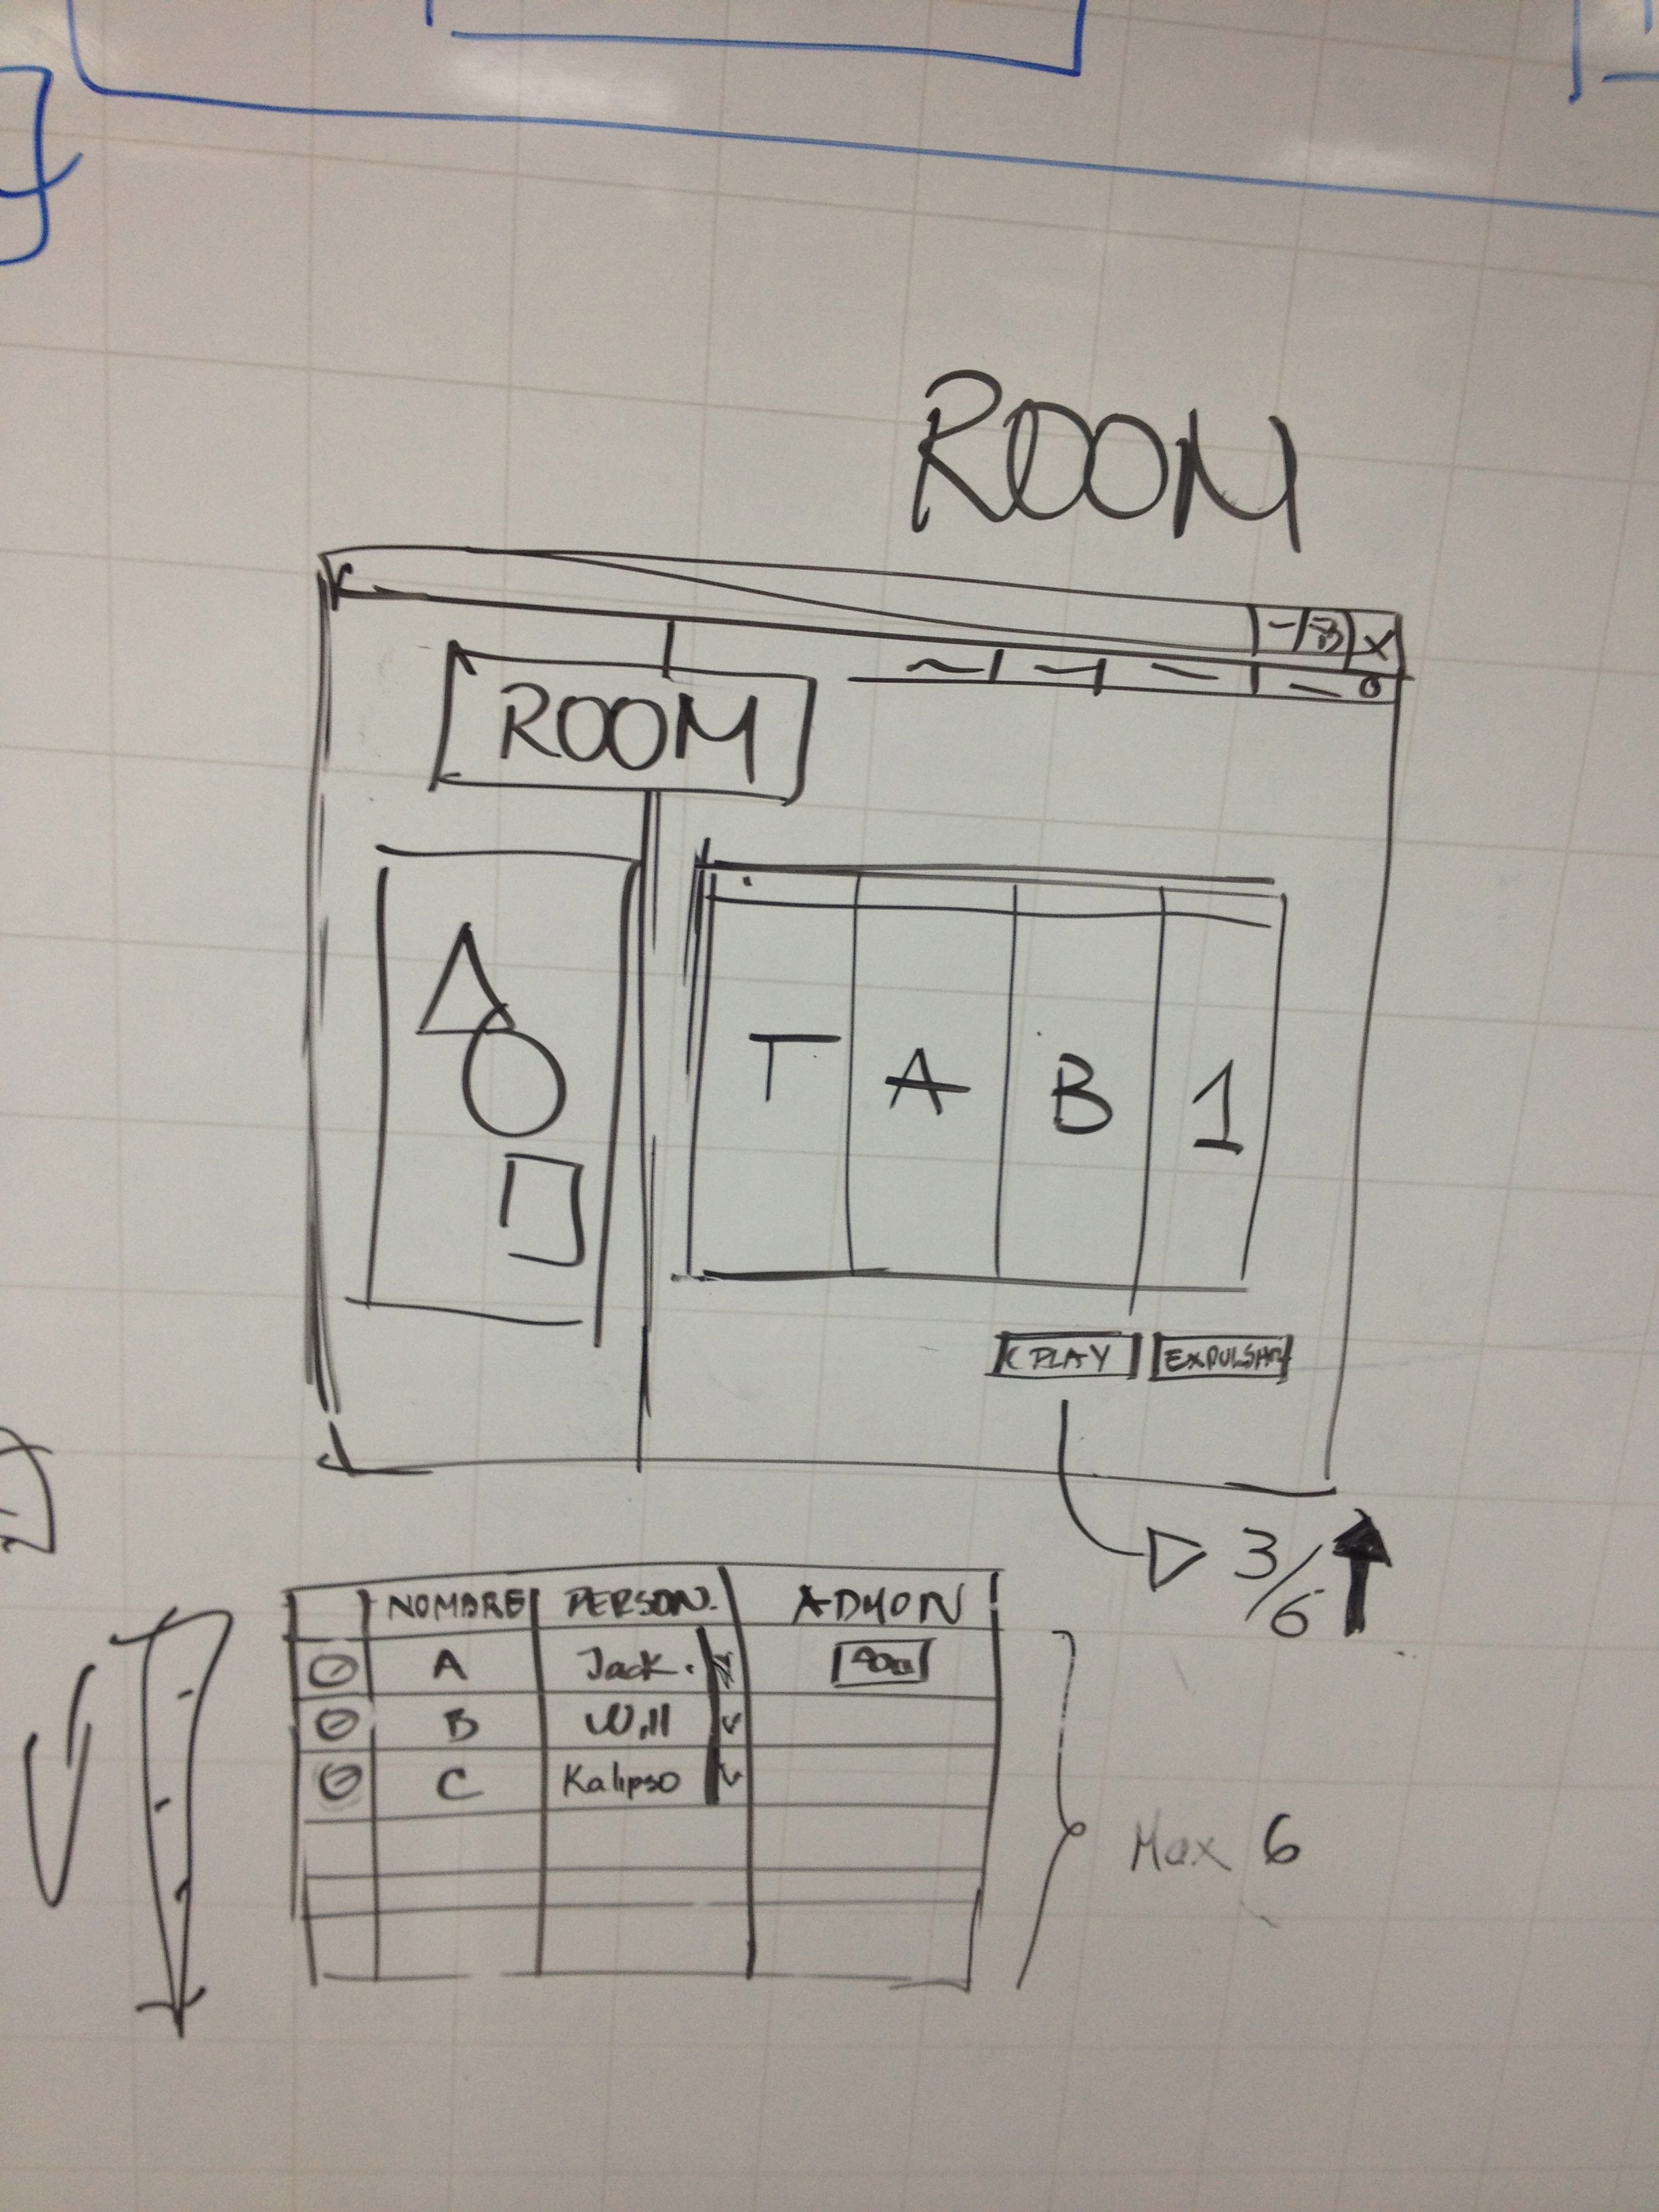 ROOM
- X
ROOM
T A B 1
PLAY
3/6
NOMBRE PERSON. ADMON
A Jack.
B Will
C Kalipso
Max 6